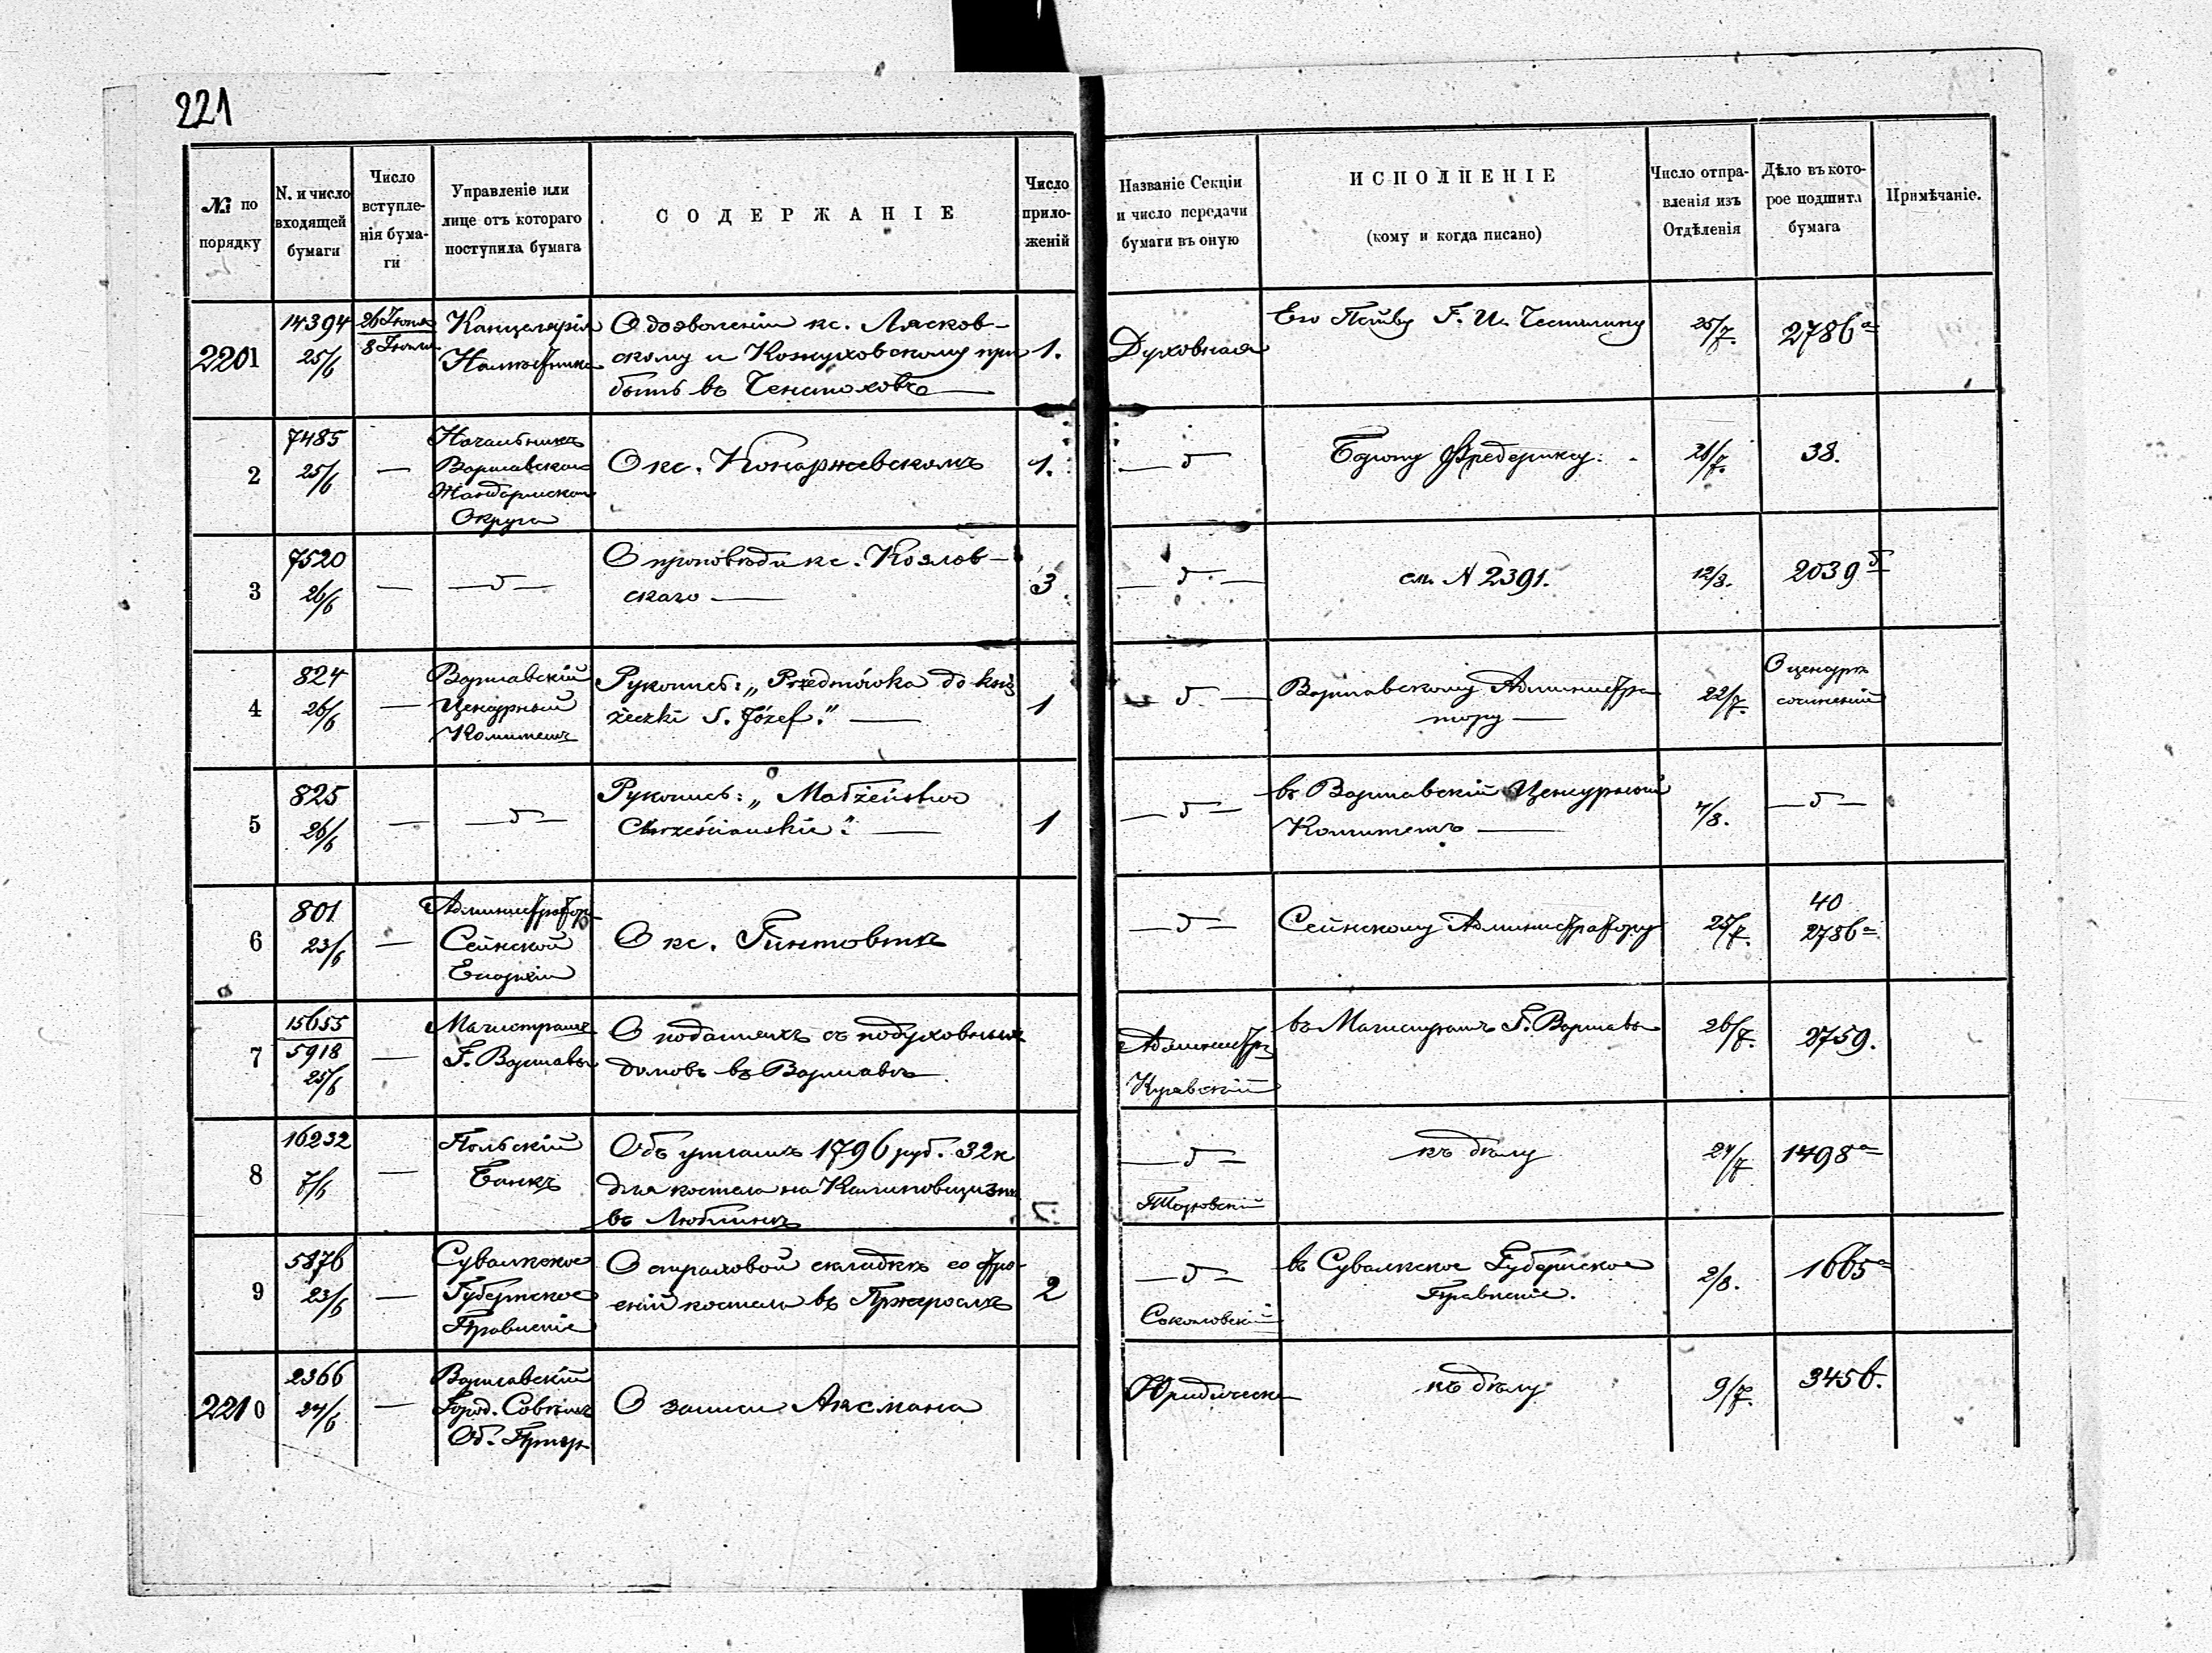 221
№ по порядку
N. и число входящей бумаги
Число вступленія бумаги
Управленіе или лице отъ котораго поступила бумага
СОДЕРЖАНІЕ
Число приложеній
Названіе Секціи и число передачи бумаги въ оную
ИСПОЛНЕНІЕ
(кому и когда писано)
Число отправленія изъ Отдѣленія
Дѣло въ которое подшита бумага
Примѣчаніе.
2201
14394
25/6
26 Іюня
8 Іюля
Канцелярія
Намѣстника
О дозволеніи кс. Лясков-
скому и Кожуховскому при
быть въ Ченстоховъ
1.
Духовная
Его Г. И.
25/7.
2786 а
2
7485
25/6
—
Начальникъ
Варшавскаго
Жандармскаго
Округа
О кс. Конаржевскомъ
1.
— „ —
Барону Фредериксу.
26/7.
38.
3
7520
26/6
—
— „ —
О проповѣди кс. Козлов-
скаго —
3
— „ —
см. N 2391.
12/8.
2039 б
4
824
26/6
—
Варшавскій
Цензурный
Комитетъ
Рукопись: „Przedmówka do ksią
żeczki S. Józef." —
1
— „ —
Варшавскому Администра
тору —
22/7.
О цензурѣ
сочиненій
5
825
26/6
—
— „ —
Рукопись: „Małżeństwo
Chrześcianskie". —
1
— „ —
въ Варшавскій Цензурный
Комитетъ —
4/8.
— „ —
6
801
23/6
—
Администраторъ
Сейнской
Епархіи
О кс. Гинтовтѣ
— „ —
Сейнскому Администратору
25/7.
40
2786 а
7
15655
5918
25/6
—
Магистратъ
Г. Варшавы
О податяхъ съ подуховныхъ
домовъ въ Варшавѣ
Администр.
Куявскій
въ Магистратъ Г. Варшавы
26/7.
2759.
8
16232
7/6
—
Польскій
Банкъ
Объ уплатѣ 1796 руб. 32 к
для костела на Калиновщизнѣ
въ Люблинѣ
— „ —
къ дѣлу
24/7
1498 а
9
5876
23/6
—
Сувалкское
Губернское
Правленіе
О страховой складкѣ со стро
еній костела въ Пржеросли
2
— „ —
Соколовскій
въ Сувалкское Губернское
Правленіе.
2/8.
1665 а
2210
2366
24/6
—
Варшавскій
Город. Совѣтъ
Об. Призр.
О записи Аксмана
Юридическая
къ дѣлу
9/7.
3456.